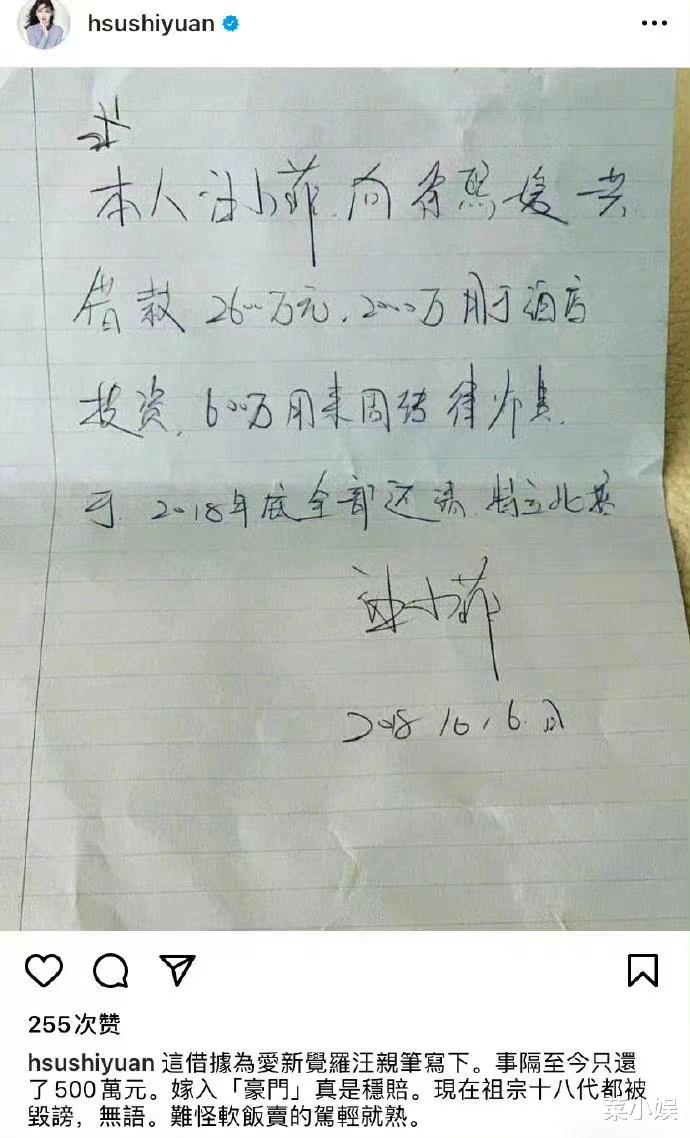 hsushiyuan
本人汪小菲.向徐熙媛共
借款2600万元.2000万用于酒店
投资.600万用来周转律师费.
于2018年底全部还清.特立此
汪小菲
2018 10.6.日
255次赞
hsushiyuan 這借據為愛新覺羅汪親筆寫下。事隔至今只還
了500萬元。嫁入「豪門」真是穩賠。現在祖宗十八代都被
毀謗，無語。難怪軟飯賣的駕輕就熟。
菜小娱